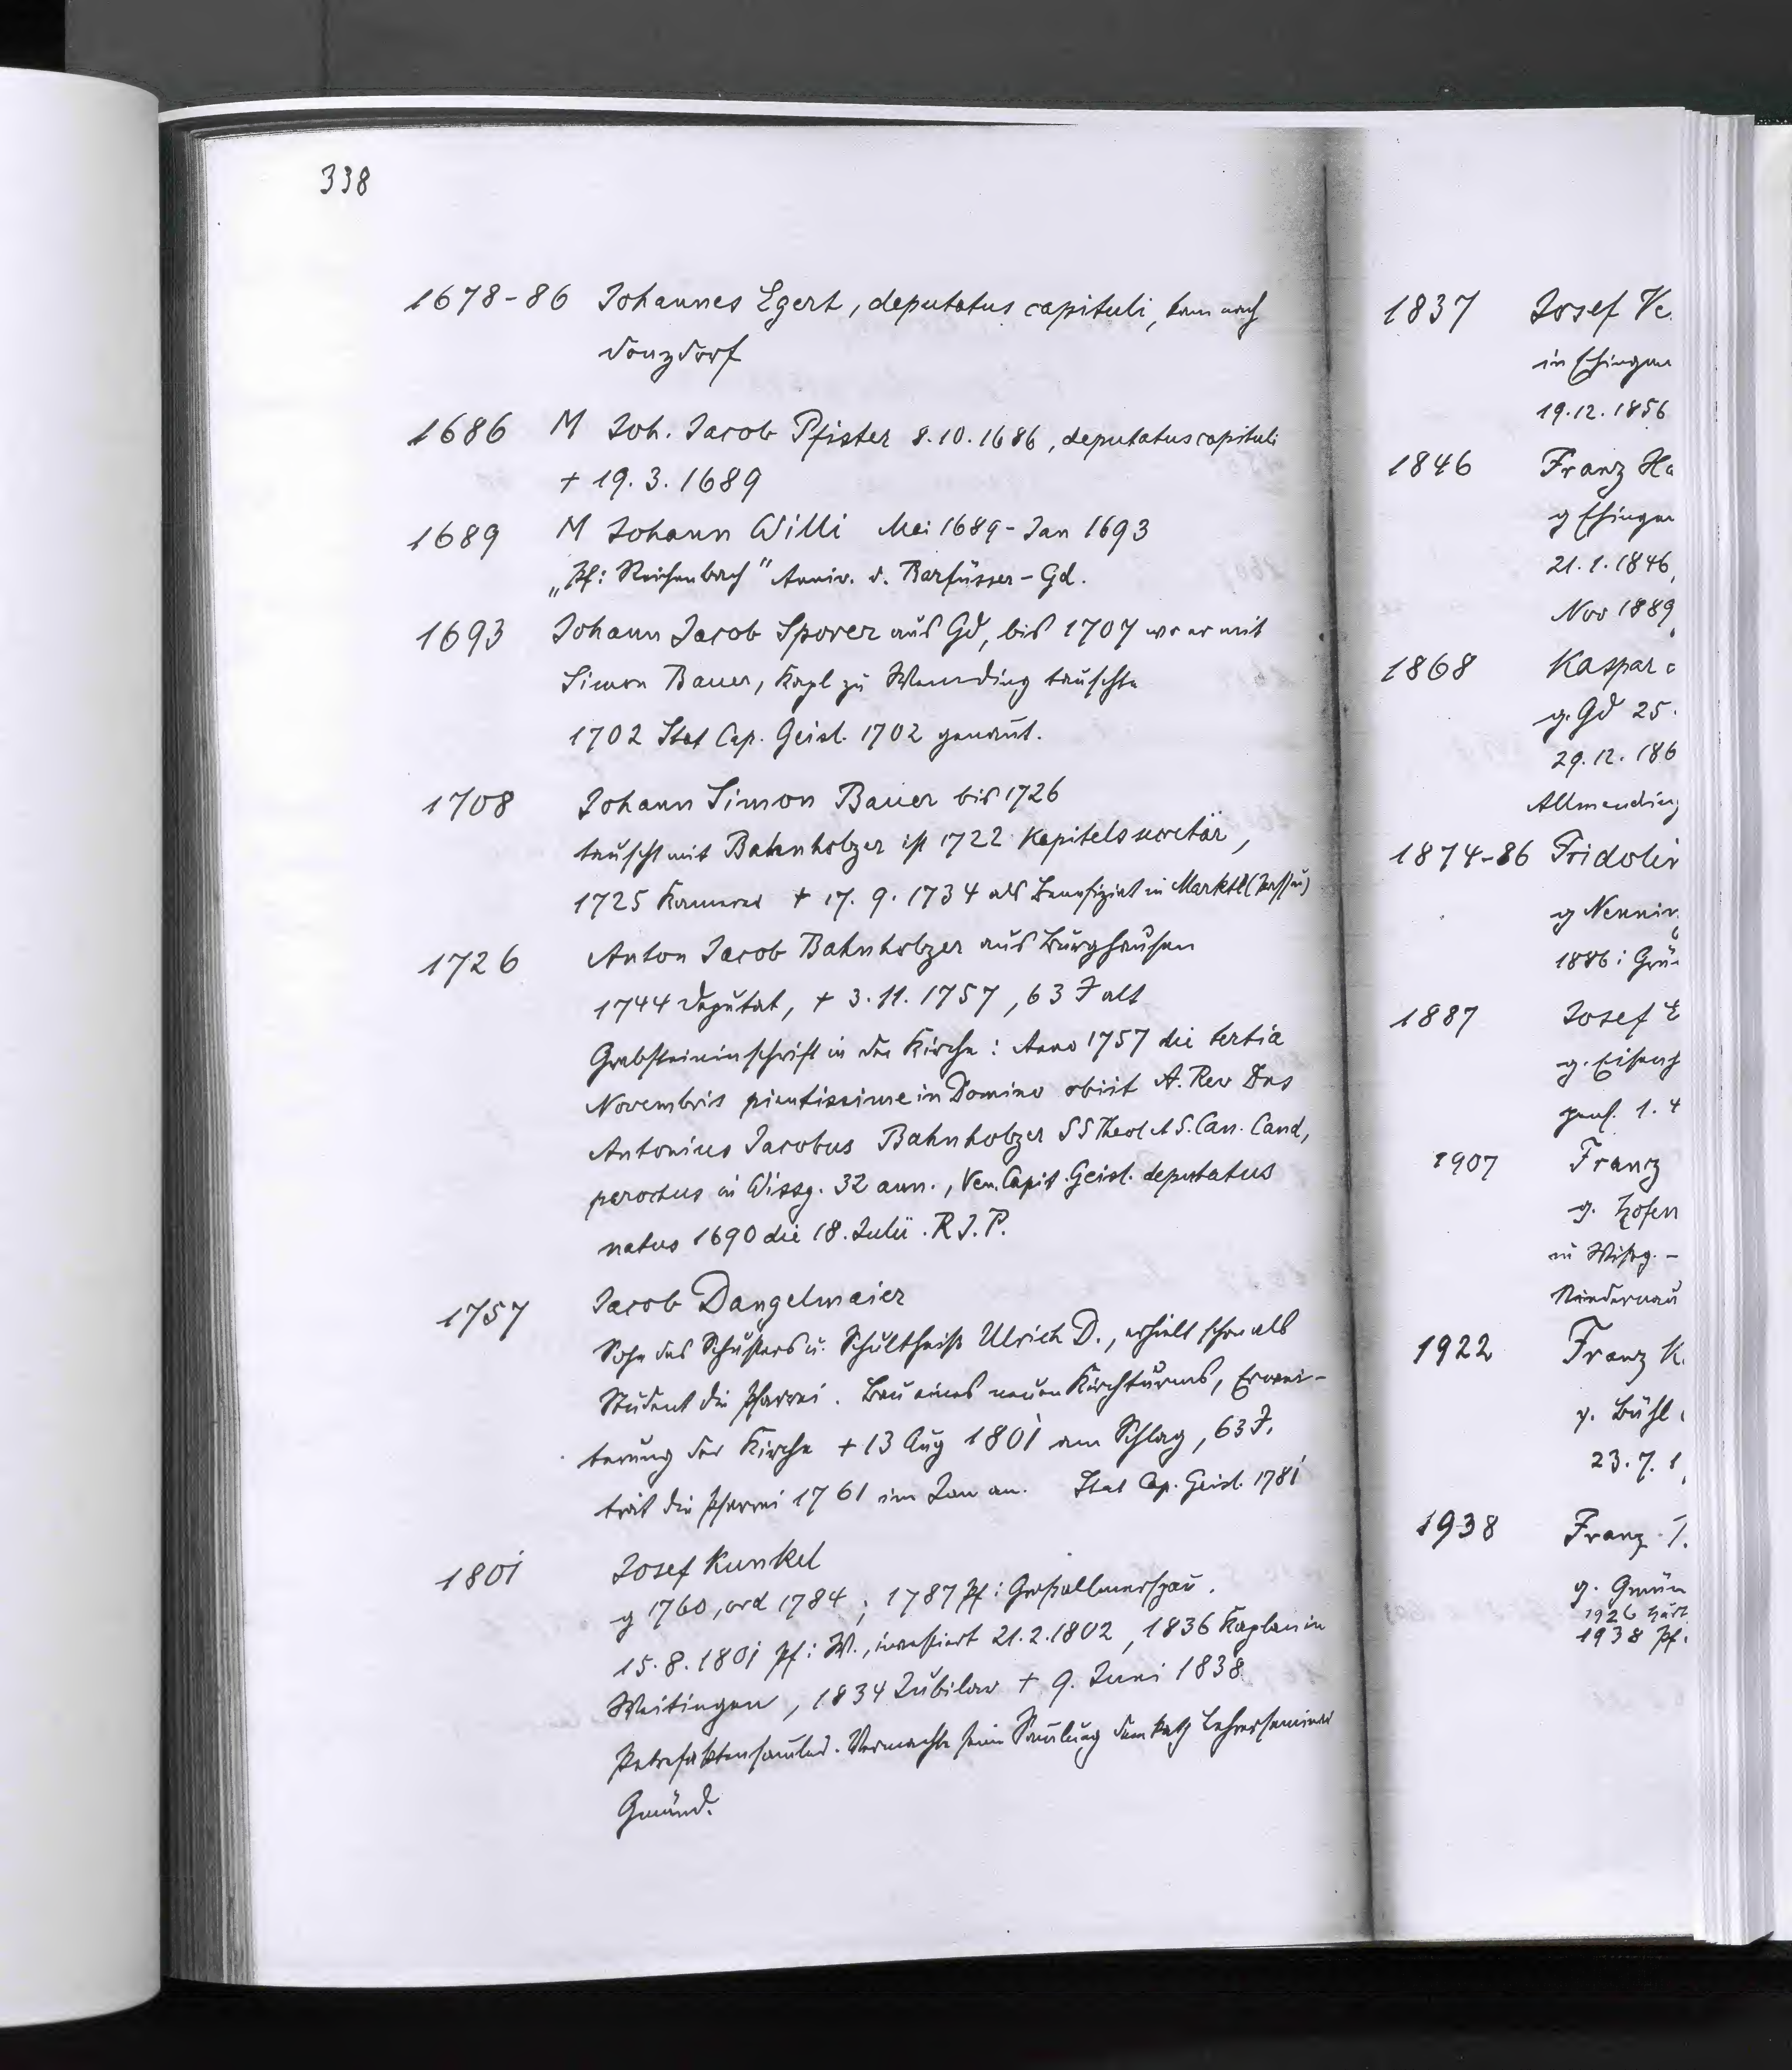 338
1678-86 Johannes Egert, deputatus capituli, kam nach
Donzdorf
1686 M Joh. Jacob Pfister 8.10.1686, deputatus capituli
+ 19. 3. 1689
1689 M Johann Willi Mai 1689 - Jan 1693
„Pf: Reichenbach" Anniv. d. Barfüsser-Gd.
1693 Johann Jacob Sporer aus Gd, bis 1707 wo er mit
Simon Bauer, Kapl zu Wemding tauschte
1702 Stat Cap. Geisl. 1702 genant.
1708 Johann Simon Bauer bis 1726
tauscht mit Bahnholzer ist 1722 Kapitelssecretär,
1725 Kamerer + 17. 9. 1734 als Benefiziat in Marktl (Passau)
1726 Anton Jacob Bahnholzer aus Burghausen
1744 Deputat, + 3. 11. 1757, 63 J alt
Grabsteininschrift in der Kirche: Anno 1757 die tertia
Novembris pientissime in Domino obiit A. Rev Dns
Antonius Jacobus Bahnholzer SS Theol et S. Can. Cand,
parochus in Wissg. 32 ann., Ven. Capit. Geisl. deputatus
natus 1690 die 18. Julii. R. J. P.
1757 Jacob Dangelmaier
Sohn des Schusters u. Schultheiß Ulrich D., erhielt schon als
Student die Pfarrei. Bau eines neuen Kirchturms, Erwei-
terung der Kirche + 13 Aug 1801 am Schlag, 63 J.
trat die Pfarrei 1761 im Jan an. Stat Cap. Geisl. 1781
1801 Josef Kunkel
g 1760, ord 1784; 1787 Pf: Großallmerspan.
15. 8. 1801 Pf: W., investiert 21. 2. 1802, 1836 Kaplan in
Weitingen, 1834 Jubilar + 9. Juni 1838
Petrefaktensamler. Vermachte seine Samlung dem kath Lehrerseminar
Gmünd.
1837 Josef Ve
in Ehingen
19. 12. 1856
1846 Franz Ha
g Ehingen
21. 1. 1846,
Nov 1889
1868 Kaspar
g. Gd 25.
29. 12. 186
Allmending
1874-86 Fridolin
g Nennin
1886: Grü
1887 Josef E
g.
1. 4
1907 Franz
g. Hofen
in Wissg. -
Niedernau
1922 Franz K
g. Bühl
23. 7. 1
1938 Franz
g. Gmün
1926
1938 Pf.